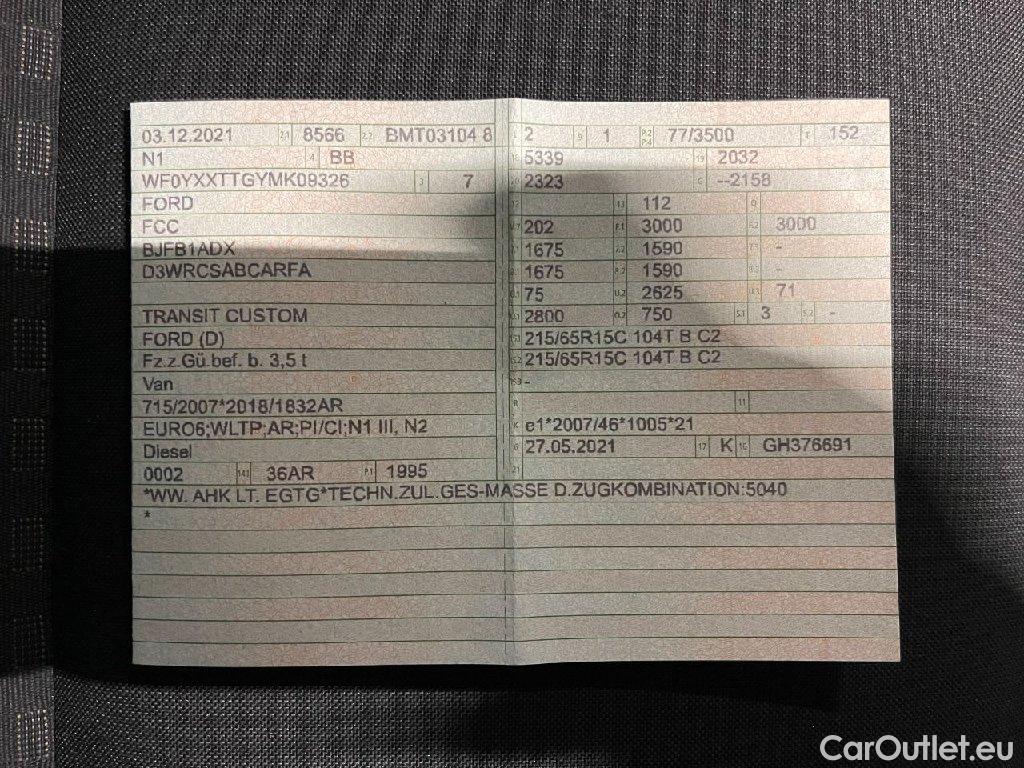 03.12.2021 2.1 8566 2.2 BMT03104 8
N1 4 BB
WF0YXXTTGYMK09326 3 7
FORD
FCC
BJFB1ADX
D3WRCSABCARFA
TRANSIT CUSTOM
FORD (D)
Fz.z.Gü.bef. b. 3,5 t
Van
715/2007*2018/1832AR
EURO6;WLTP;AR;PI/CI;N1 III, N2
Diesel
0002 14.1 36AR P.1 1995
L 2 9 1 P.2 P.4 77/3500 T 152
18 5339 19 2032
20 2323 G --2158
12 13 112 Q
V.7 202 F.1 3000 F.2 3000
7.1 1675 7.2 1590 7.3 -
8.1 1675 8.2 1590 8.3 -
U.1 75 U.2 2625 U.3 71
O.1 2800 O.2 750 S.1 3 S.2 -
15.1 215/65R15C 104T B C2
15.2 215/65R15C 104T B C2
15.3 -
R 11
K e1*2007/46*1005*21
6 27.05.2021 17 K 16 GH376691
21
*WW. AHK LT. EGTG*TECHN.ZUL.GES-MASSE D.ZUGKOMBINATION:5040
*
CarOutlet.eu